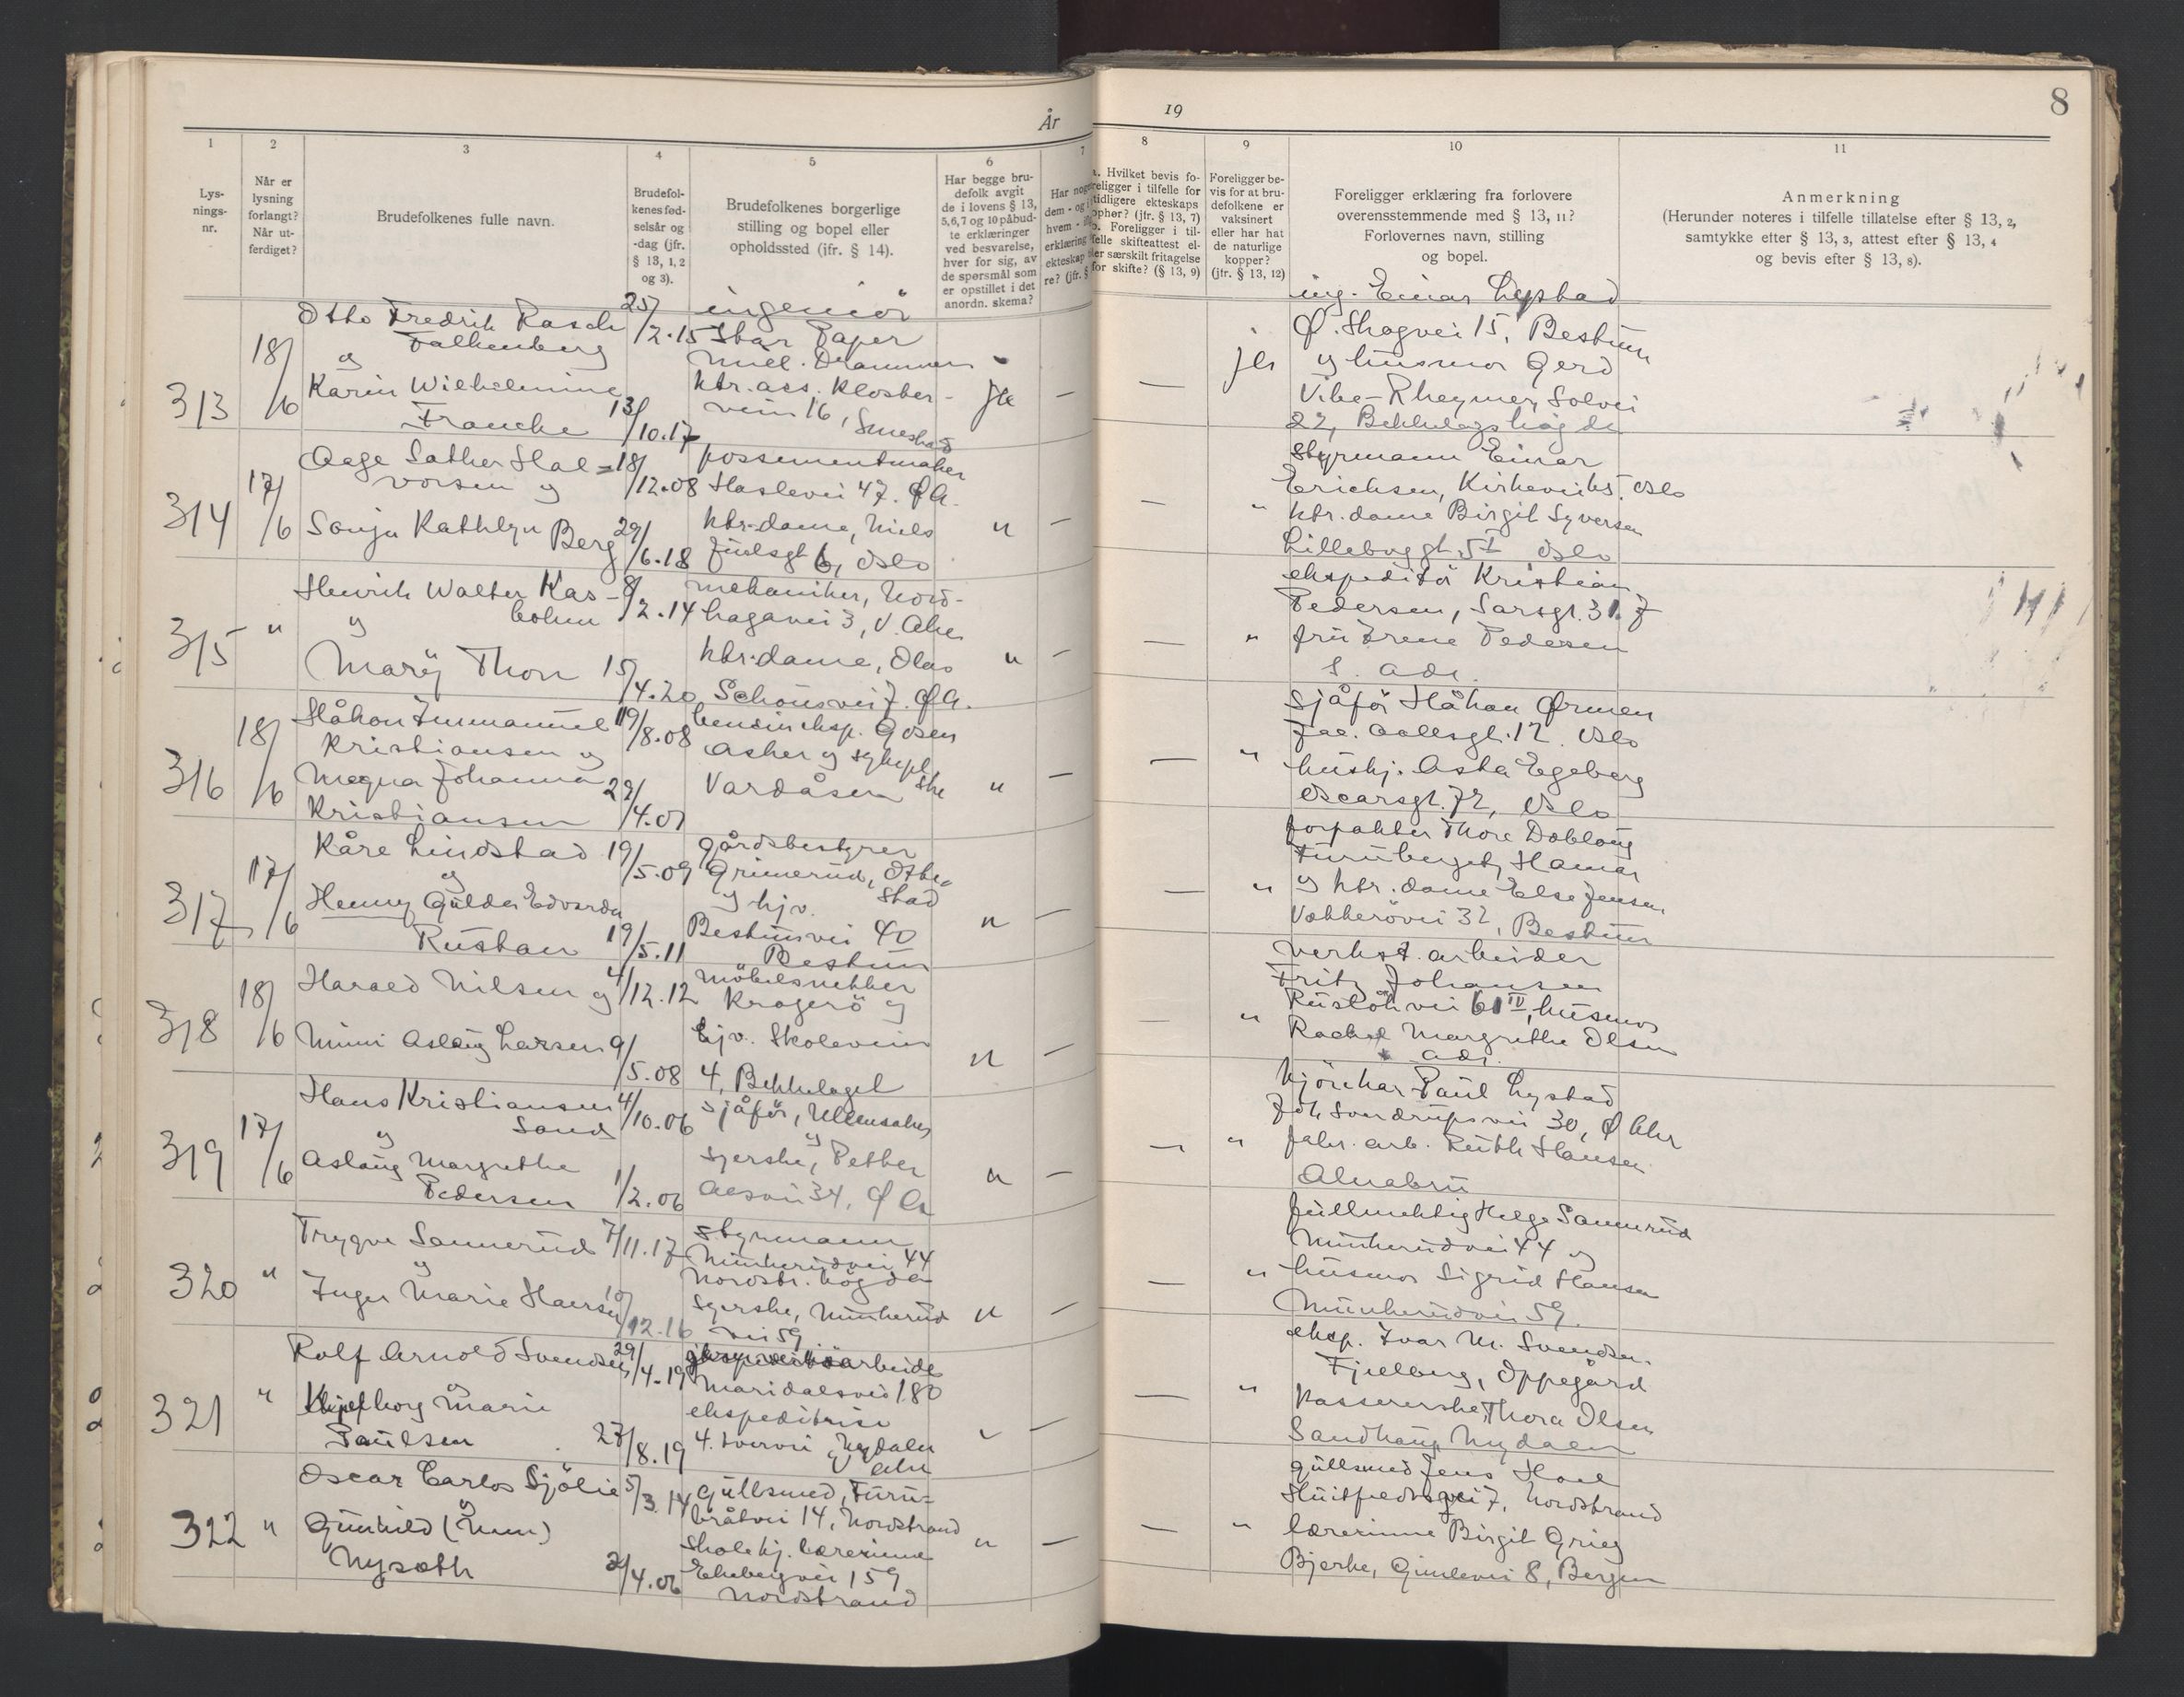 År
19
8
1
2
3
4
5
6
7
8
9
10
11
Lys-
nings-
nr.
Når er
lysning
forlangt?
Når ut-
ferdiget?
Brudefolkenes fulle navn.
Brudefol-
kenes fød-
selsår og
-dag (jfr.
§ 13, 1, 2
og 3).
Brudefolkenes borgerlige
stilling og bopel eller
opholdssted (jfr. § 14).
Har begge bru-
defolk avgit
de i lovens § 13,
5, 6, 7 og 10 påbud-
te erklæringer
ved besvarelse,
hver for sig, av
de spørsmål som
er opstillet i det
anordn. skema?
Har
dem - og
hvem
erklæring
ekteskap
re? (jfr. §
Hvilket bevis fo-
religger i tilfelle for
tidligere ekteskaps
ophør? (jfr. § 13, 7)
Foreligger i til-
felle skifteattest el-
ler særskilt fritagelse
for skifte? (§ 13, 9)
Foreligger be-
vis for at bru-
defolkene er
vaksinert
eller har hat
de naturlige
kopper?
(jfr. § 13, 12)
Foreligger erklæring fra forlovere
overensstemmende med § 13, 11?
Forlovernes navn, stilling
og bopel.
Anmerkning
(Herunder noteres i tilfelle tillatelse efter § 13, 2,
samtykke efter § 13, 3, attest efter § 13, 4
og bevis efter § 13, 8).
313
18/6
Otto Fredrik Rasch
Falkenberg
og
Karin Wilhelmine
Francke
25/2.15
13/10.17
ingeniör
Star Paper
Mill. Drammen
ktr. ass. Kloster-
veien 16, Smestad
Ja
—
—
ja
ing. Einar Lystad
Ø. Skogvei 15, Bestum
og husmor Gerd
Vibe-Rheymer, Solvei
22, Bekkelagshøgda
314
17/6
Aage Sather Hal=
vorsen og
Sonja Kathlyn Berg
18/12.08
29/6.18
possementmaker
Haslevei 47. Ø.A.
ktr.dame, Niels
Juelsgt 6, Oslo
"
—
—
"
Styrmann Einar
Erichsen, Oslo
ktr. dame Birgit Syversen
gt. 5 I Oslo
315
"
Henrik Walter Kas-
bohm
og
Mary Thon
8/2.14
15/4.20
mekaniker, Nord-
hagavei 3, V. Aker
ktr.dame, Olav
Schousvei 7. Ø.A.
"
—
—
"
ekspeditör Kristian
Pedersen, Sarsgt. 31. 7
fru Irene Pedersen
s. adr.
316
18/6
Håkon Immanuel
Kristiansen og
Magna Johanna
Kristiansen
19/8.08
29/4.07
bensineksp.
Asker og sykepl
ske
Vardåsen
"
—
—
"
Sjåför Håkon Ørmen
Jac. Aallsgt. 12. Oslo
hushj. Asta Egeberg
Oscarsgt. 72, Oslo
317
17/6
Kåre Lindstad
og
Henny Gulda Edvarda
Rustan
19/5.09
19/5.11
gårdsbestyrer
Grimerud, Otte-
stad
og hjv.
Bestumvei 40
Bestum
"
—
—
"
forpakter Thore Dobloug
Furuberget, Hamar
og ktr. dame Else Jensen
Vækkerövei 32, Bestum
318
18/6
Harald Nilsen og
Mimi Aslaug Larsen
4/12.12
9/5.08
möbelsnekker
Kragerö og
hjv. Skoleveien
4, Bekkelaget
"
—
—
"
verkst. arbeider
Fritz Johansen
vei 61 IV, husmor
Rachel Margrethe Olsen
adr.
319
17/6
Hans Kristiansen
Sand
og
Aslaug Margrethe
Pedersen
4/10.06
1/2.06
sjåför, Ullensaker
og
syerske, Petter
Aasvei 34, Ø A
"
—
—
"
kjörekar Paul Lystad
Joh Sverdrupsvei 30, Ø Aker
fabr. arb. Ruth Hansen
Alnabru
320
"
Trygve Sannerud
og
Inger Marie Hansen
7/11.17
10/12.16
Styrmann
Munkerudvei 44
Nordstr. högda
Syerske, Munkerud
vei 59
"
—
—
"
fullmektig Helge Sannerud
Munkerudvei 44 og
husmor Sigrid Hansen
Munkerudvei 59.
321
"
Rolf Arnold Svendsen
og
Marie
Paulsen
29/4.19
27/8.19
arbeider
Maridalsvei 180
ekspeditrise
4. tverrvei, Nydalen
V Aker
"
—
—
"
eksp. Ivar M. Svendsen.
Fjellberg, Oppegård
Kassererske Thora Olsen
Sandhaug Nydalen
322
"
Oscar Carlos Sjölie
og
Gunhild (Nun)
Nysæth
5/3.14
2/4.06
gullsmed, Furu=
bråtvei 14, Nordstrand
Skolekj. lærerinne
Ekebergvei 159
Nordstrand
"
—
—
"
gullsmed Jens Hoel
Huitfeldtsvei 7, Nordstrand
lærerinne Birgit Grieg
Bjerke, Gimlevei 8, Bergen